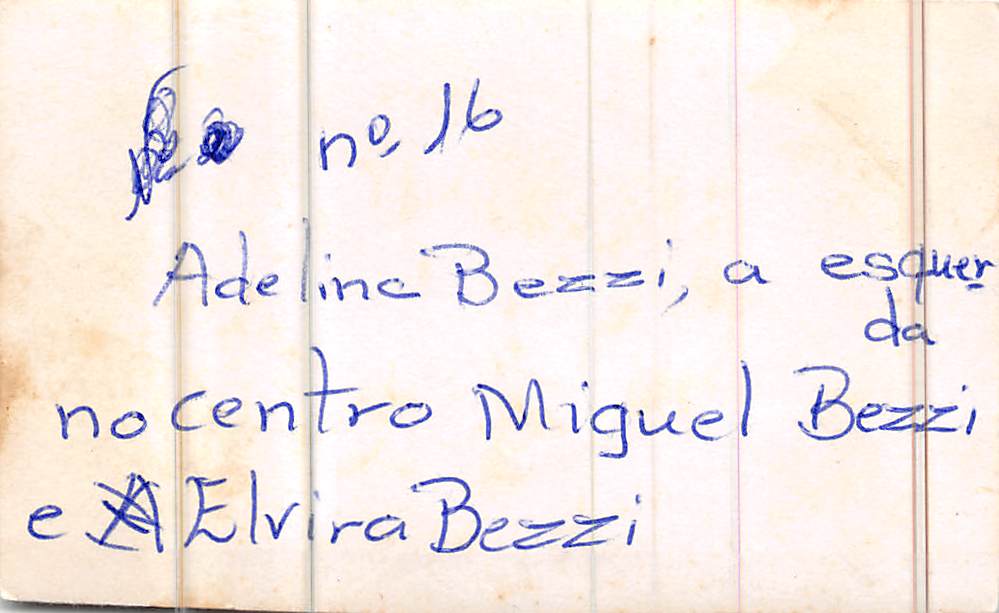 nº 16
Adelina Bezzi, a esquer
da
no centro Miguel Bezzi
e Elvira Bezzi